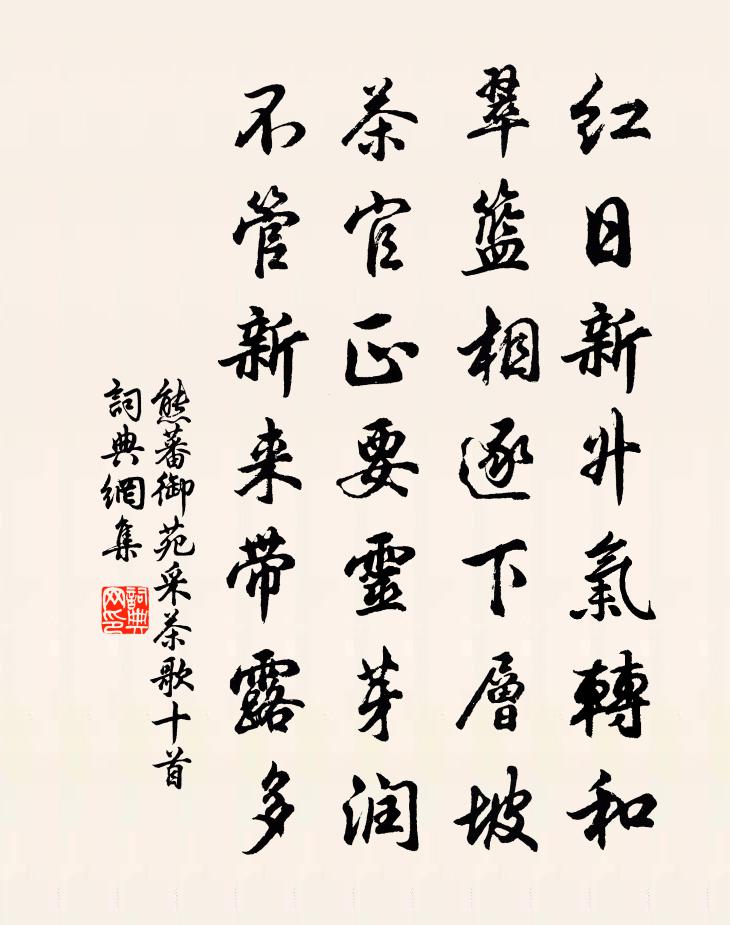 红日新升氣轉和
翠籃相逐下層坡
茶官正要靈芽润
不管新来带露多
熊蕃御苑采茶歌十首
詞典網集
詞典网印